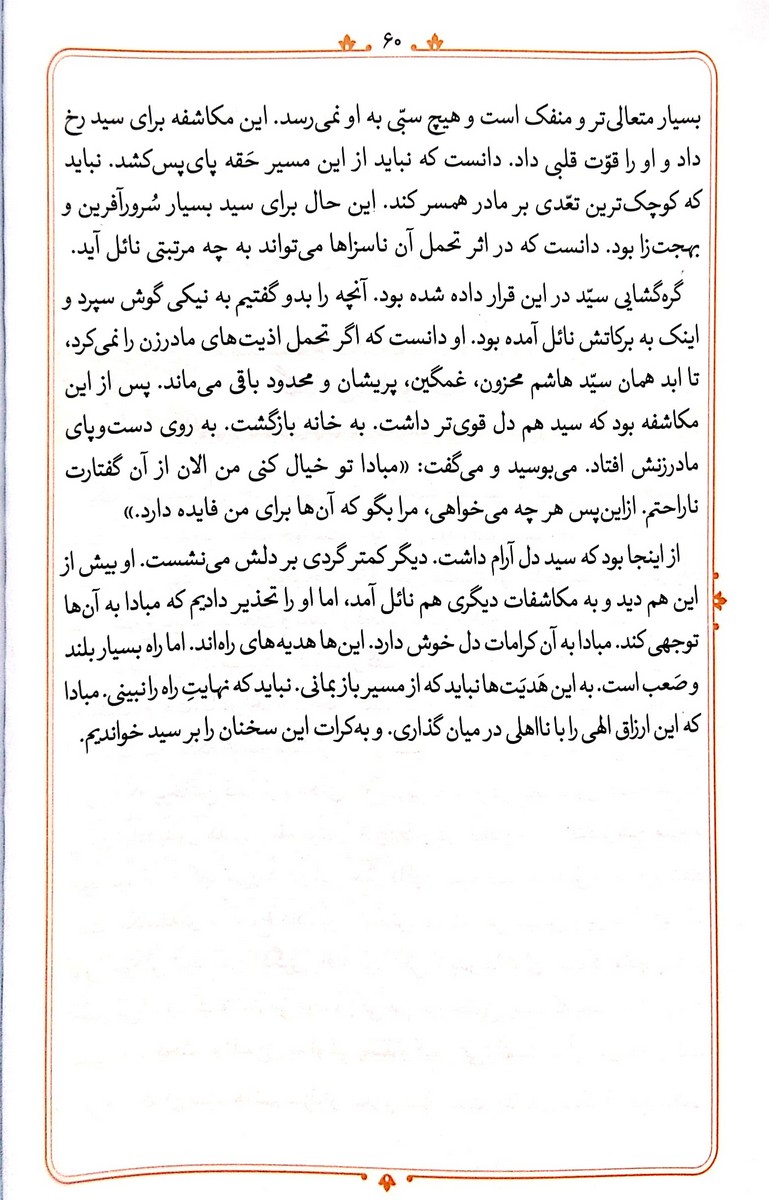 ۶۰
بسیار متعالی‌تر و منفک است و هیچ سبّی به او نمی‌رسد. این مکاشفه برای سید رخ
داد و او را قوّت قلبی داد. دانست که نباید از این مسیر حَقه پای‌پس‌کشد. نباید
که کوچک‌ترین تعّدی بر مادر همسر کند. این حال برای سید بسیار سُرورآفرین و
بهجت‌زا بود. دانست که در اثر تحمل آن ناسزاها می‌تواند به چه مرتبتی نائل آید.
گره‌گشایی سیّد در این قرار داده شده بود. آنچه را بدو گفتیم به نیکی گوش سپرد و
اینک به برکاتش نائل آمده بود. او دانست که اگر تحمل اذیت‌های مادرزن را نمی‌کرد،
تا ابد همان سیّد هاشم محزون، غمگین، پریشان و محدود باقی می‌ماند. پس از این
مکاشفه بود که سید هم دل قوی‌تر داشت. به خانه بازگشت. به روی دست‌وپای
مادرزنش افتاد. می‌بوسید و می‌گفت: «مبادا تو خیال کنی من الان از آن گفتارت
ناراحتم. ازاین‌پس هر چه می‌خواهی، مرا بگو که آن‌ها برای من فایده دارد.»
از اینجا بود که سید دل آرام داشت. دیگر کمتر گردی بر دلش می‌نشست. او بیش از
این هم دید و به مکاشفات دیگری هم نائل آمد، اما او را تحذیر دادیم که مبادا به آن‌ها
توجهی کند. مبادا به آن کرامات دل خوش دارد. این‌ها هدیه‌های راه‌اند. اما راه بسیار بلند
و صَعب است. به این هَدیَت‌ها نباید که از مسیر باز بمانی. نباید که نهایتِ راه را نبینی. مبادا
که این ارزاق الهی را با نااهلی در میان گذاری. و به‌کرات این سخنان را بر سید خواندیم.